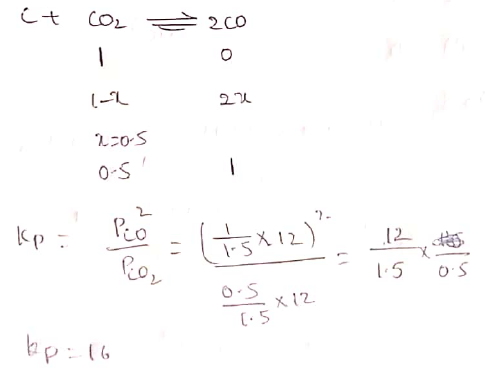 C + CO2 ⇌ 2CO
1 0
1-x 2x
x=0.5
0.5 1
Kp = PCO^2 / PCO2 = (1/1.5 × 12)^2 / (0.5/1.5 × 12) = 12/1.5 × /0.5
Kp = 16